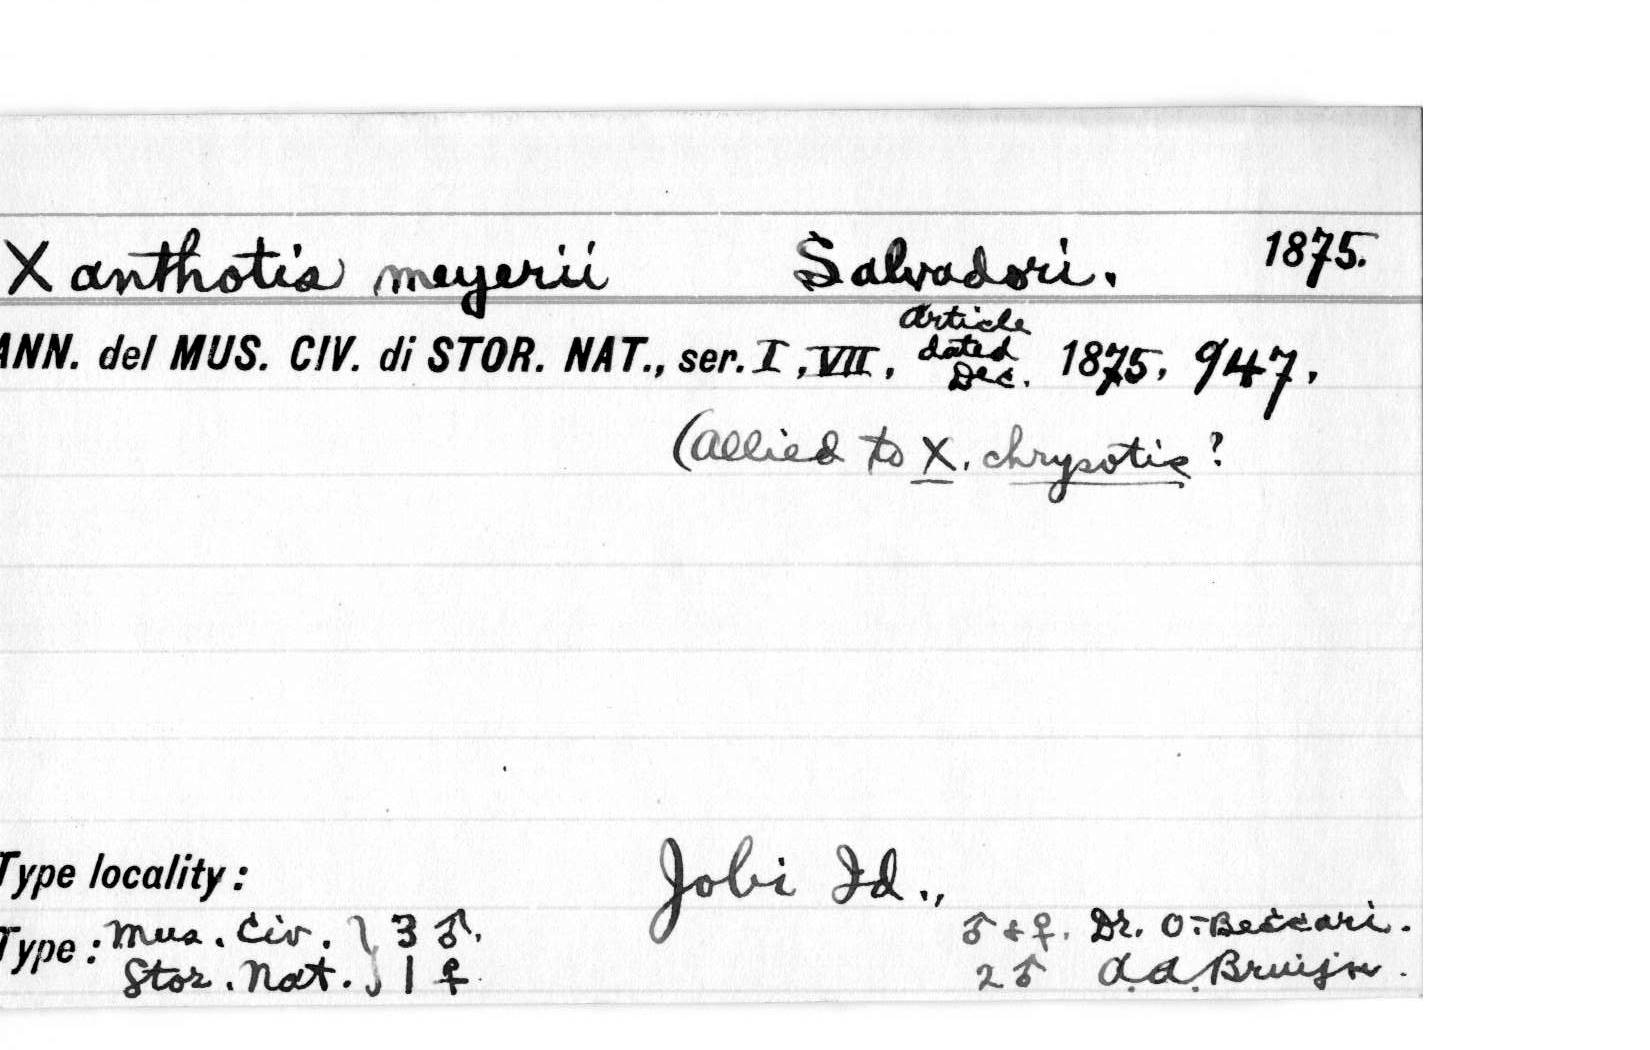 Xanthotis meyerii Salvadori. 1875.
ANN. del MUS. CIV. di STOR. NAT., ser. I, VII, Article dated Dec. 1875, 947,
(allied to X. chrysotis?
Type locality: Jobi Id.,
Type: Mus. Civ. } 3 ♂. ♂ & ♀. Dr. O. Beccari.
Stor. Nat. } 1 ♀ 2 ♂ A.A. Bruijn.